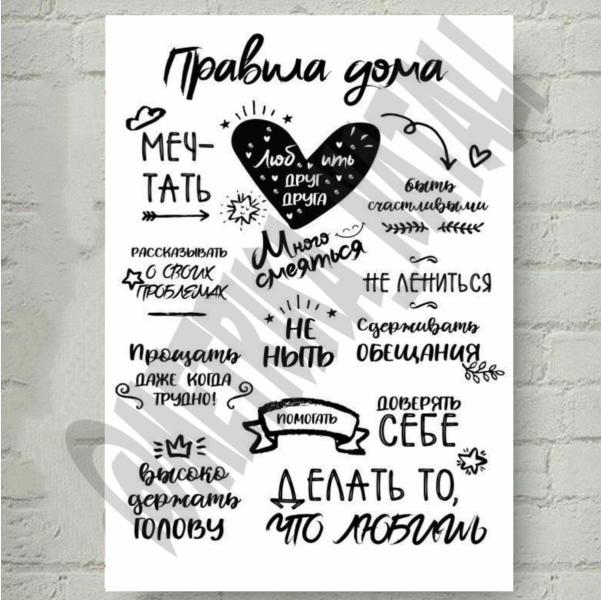 Правила дома
МЕЧ-
ТАТЬ
Любить
ДРУГ
ДРУГА
быть
счастливыми
Много
смеяться
РАССКАЗЫВАТЬ
О СВОИХ
ПРОБЛЕМАХ
НЕ ЛЕНИТЬСЯ
НЕ
НЫТЬ
Сдерживать
ОБЕЩАНИЯ
Прощать
ДАЖЕ КОГДА
ТРУДНО!
ПОМОГАТЬ
ДОВЕРЯТЬ
СЕБЕ
Высоко
держать
ГОЛОВУ
ДЕЛАТЬ ТО,
ЧТО ЛЮБИШЬ